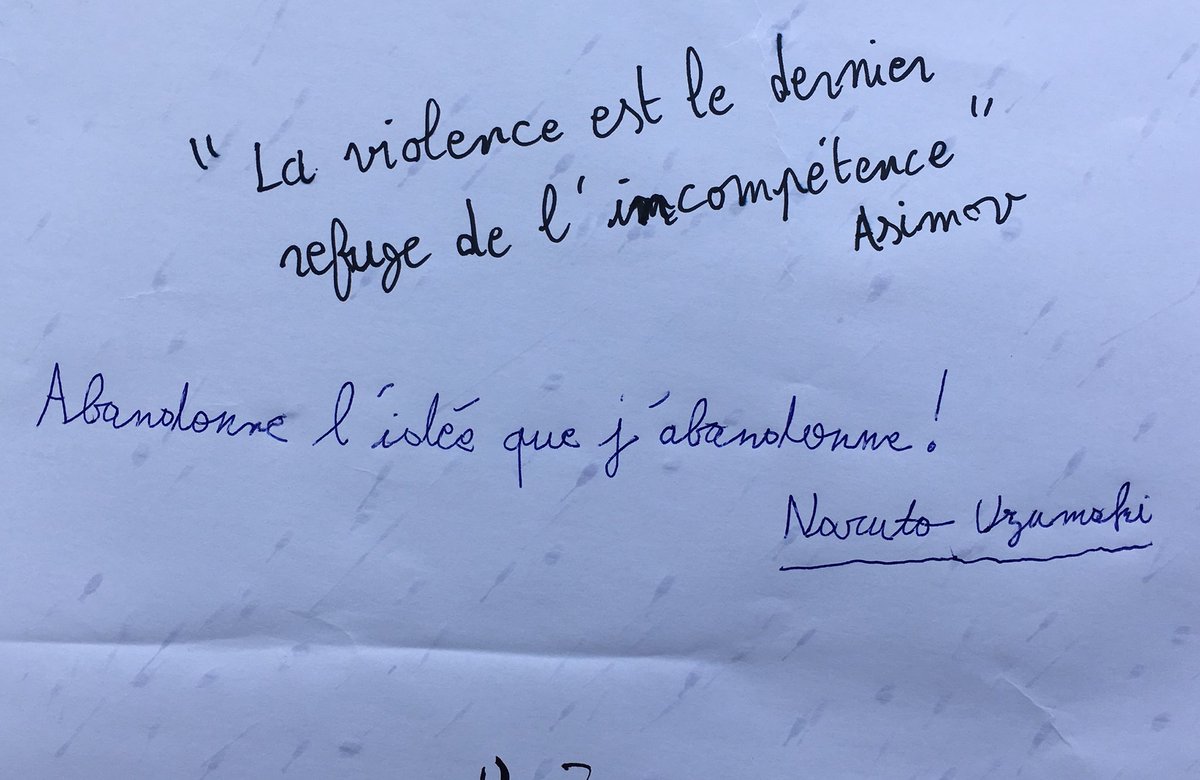 " La violence est le dernier
refuge de l'incompétence "
Asimov
Abandonne l'idée que j'abandonne !
Naruto Uzumaki